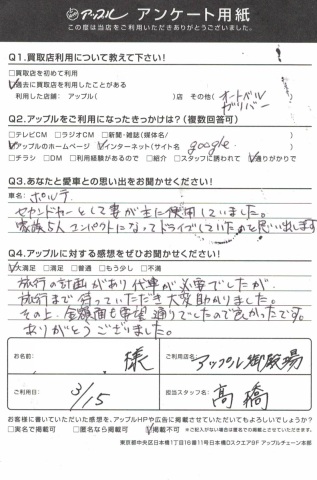 アップル アンケート用紙
この度は当店をご利用いただきありがとうございました。
Q1.買取店利用について教えて下さい!
□買取店を初めて利用
☑過去に買取店を利用したことがある
利用した店舗: アップル( )店 その他( オートバックス ガリバー
Q2.アップルをご利用になったきっかけは?(複数回答可)
□テレビCM □ラジオCM □新聞・雑誌(媒体名/ )
☑アップルのホームページ ☑インターネット(サイト名 google )
□チラシ □DM □利用経験があるので □紹介 □スタッフに誘われて ☑通りがかりで
Q3.あなたと愛車との思い出をお聞かせください!
車名: ポルテ
セカンドカーとして妻が主に使用していました。
家族5人コンパクトになってドライブしていたのを思い出します
Q4.アップルに対する感想をぜひお聞かせください!
☑大満足 □満足 □普通 □もう少し □不満
旅行の計画があり代車が必要でしたが、
旅行まで待っていただき大変助かりました。
その上、金額面も希望通りでしたので良かったです。
ありがとうございました。
お名前: 様
ご利用店名: アップル御殿場
ご利用日: 3/15
担当スタッフ名: 高橋
お客様に書いていただいた感想を、アップルHPや広告に掲載させていただいてもよろしいでしょうか?
□実名で掲載可 □匿名なら掲載可 ☑掲載不可 ※ご記入がない場合は匿名での掲載とさせていただきます。
東京都中央区日本橋1丁目16番11号日本橋Dスクエア9F アップルチェーン本部